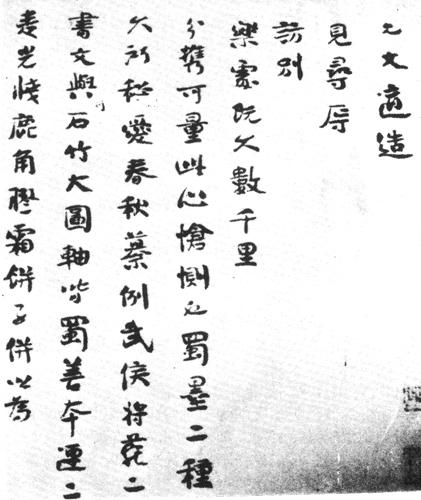 文適造
見尋辱
訪別
樂處既久數千里
分攜可量此心愴惻也蜀墨二種
久所秘愛春秋纂例武侯将苑二
書文與石竹大圖軸皆蜀善本
光牋鹿角膠霜餅子併以為